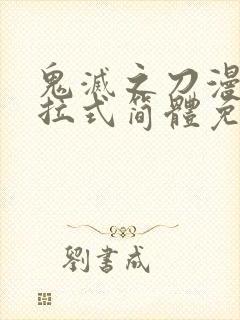 鬼滅之刀漫
拉式简體免
劉書成